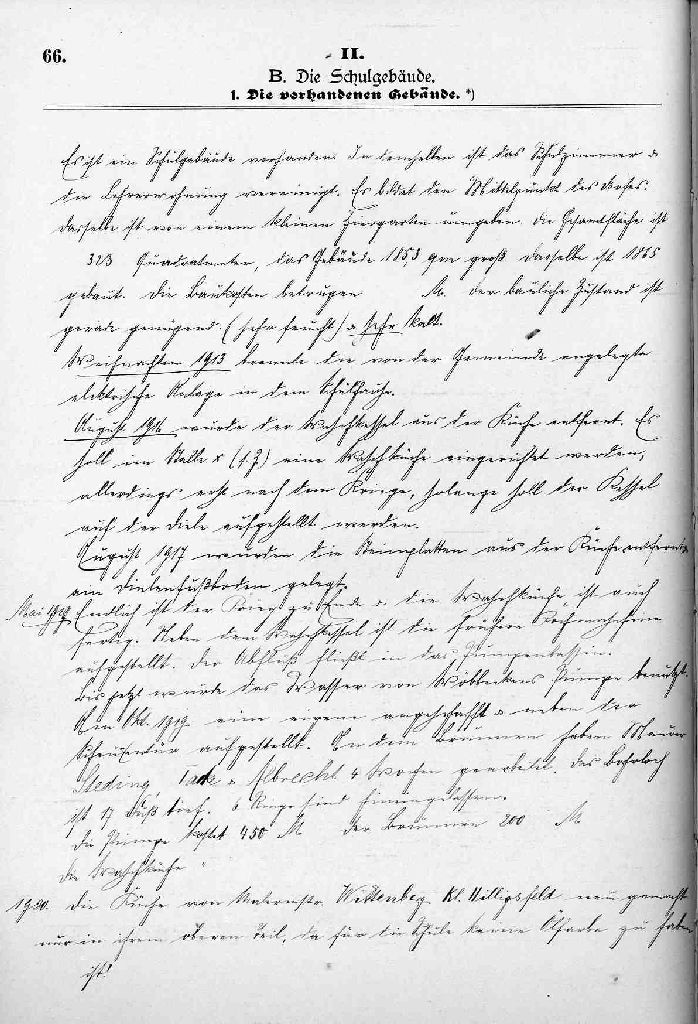 66.
II.
B. Die Schulgebäude.
1. Die vorhandenen Gebäude. *)
Es ist ein Schulgebäude vorhanden. In demselben ist das Schulzimmer u.
die Lehrerwohnung vereinigt. Es bildet den Mittelpunkt des Dorfes.
Dasselbe ist von einem kleinen Ziergarten umgeben. Die Gesamtfläche ist
323 Quadratmeter, das Gebäude 185,3 qm groß. Dasselbe ist 1865
gebaut. Die Baukosten betrugen M. Der bauliche Zustand ist
gerade genügend. (sehr feucht) u. sehr kalt.
Weihnachten 1913 brannte die von der Gemeinde angelegte
elektrische Anlage in dem Schulhause.
August 1916 wurde der Waschkessel aus der Küche entfernt. Es
soll im Stalle eine Waschküche eingerichtet werden,
allerdings erst nach dem Kriege, solange soll der Kessel
auf der Diele aufgestellt werden.
August 1917 wurden die Steinplatten aus der Küche entfernt u.
ein Dielenfußboden gelegt.
Mai 1919 Endlich ist der Krieg zu Ende u. die Waschküche ist auch
fertig. Neben dem Waschkessel ist die frühere
aufgestellt. Der Abfluß fließt in das
Bis jetzt wurde das Wasser von Pumpe benutzt.
Im Okt. 1919 eine eigene angeschafft u. neben der
Scheunentür aufgestellt. An dem Brunnen haben Maurer
Steding, u. Albrecht 4 Wochen gearbeitet. Das Bohrloch
ist 17 Fuß tief. 6 Ringe sind hineingelassen.
Die Pumpe kostet 450 M der Brunnen 200 M
die Waschküche
1920. Die Küche von Malermstr. Wittenberg Kl. Hilligsfeld neu gemacht
nur in ihrem oberen Teil, da für die Schule keine Ölfarbe zu haben
ist!